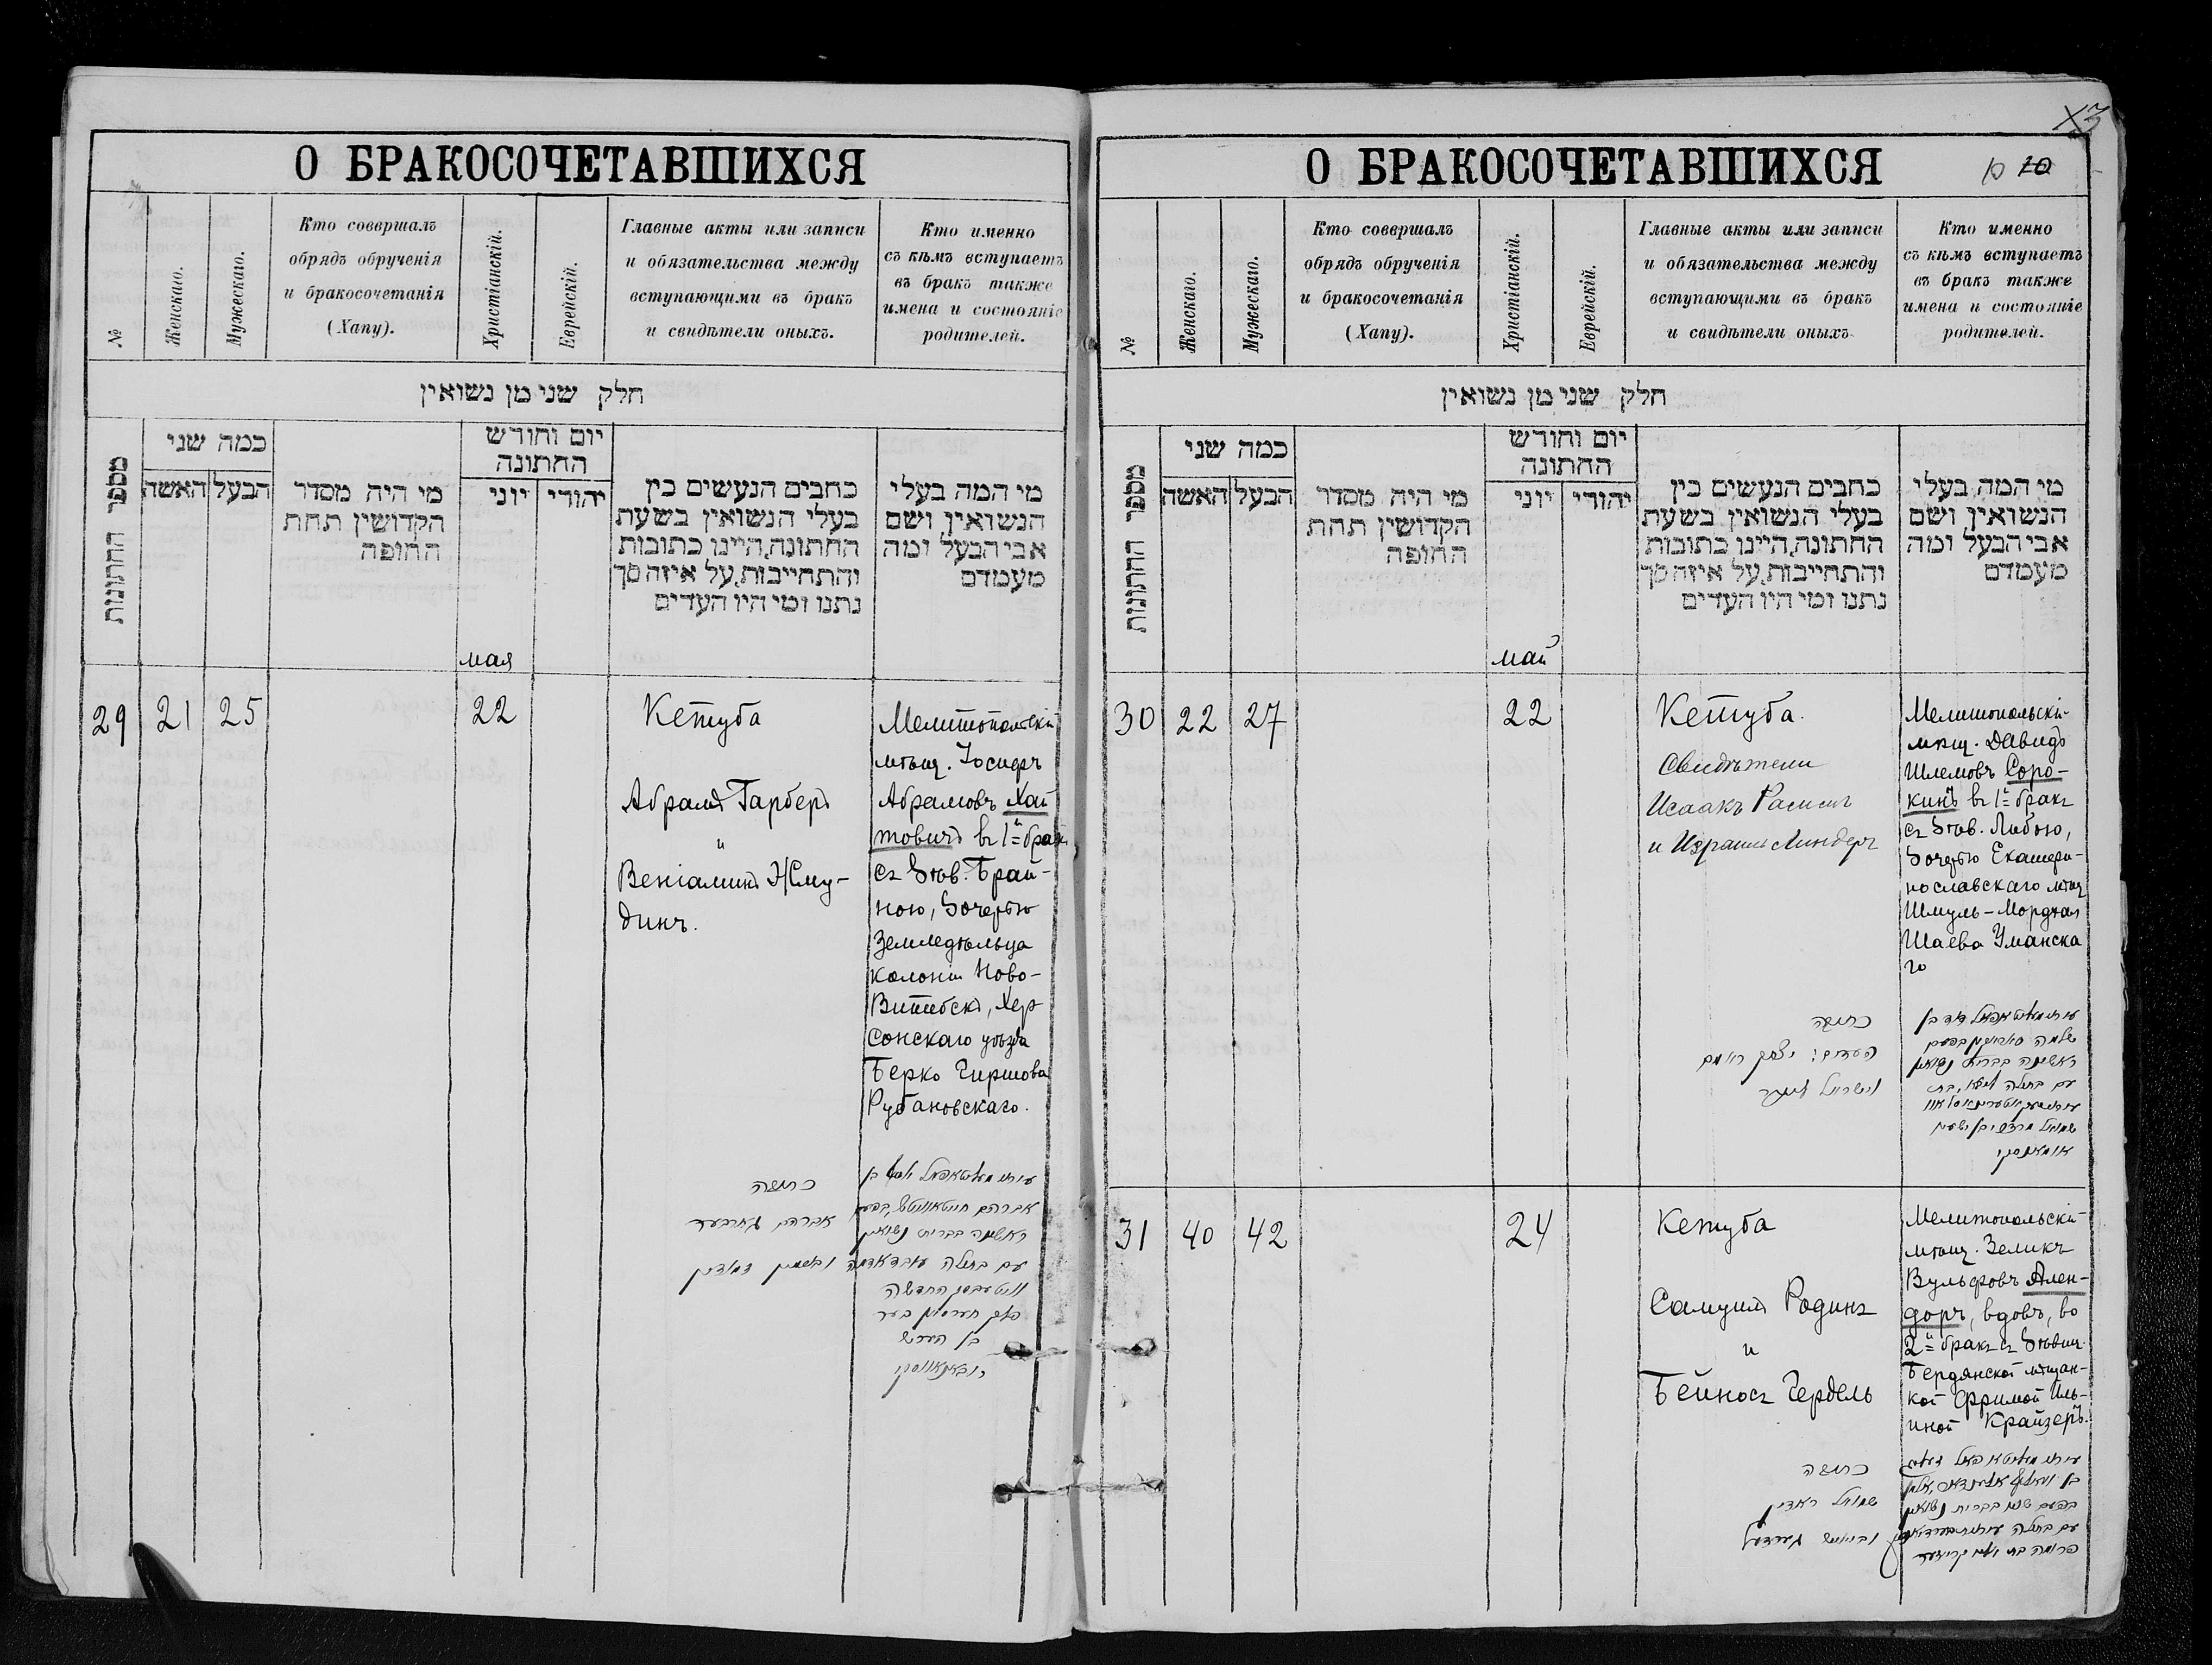 О БРАКОСОЧЕТАВШИХСЯ
№
Женскаго.
Мужескаго.
Кто совершалъ
обрядъ обрученія
и бракосочетанія
(Хапу).
Христіанскій.
Еврейскій.
Главные акты или записи
и обязательства между
вступающими въ бракъ
и свидѣтели оныхъ.
Кто именно
съ кѣмъ вступаетъ
въ бракъ также
имена и состояніе
родителей.
חלק שני מן נשואין
מספר החתונות
כמה שני
האשה
הבעל
מי היה מסדר
הקדושין תחת
החופה
יום וחודש
החתונה
יוני
יהודי
כתבים הנעשים בין
בעלי הנשואין בשעת
החתונה, היינו כתובות
והתחייבות, על איזה סך
נתנו ומי היו העדים
מי המה בעלי
הנשואין ושם
אבי הבעל ומה
מעמדם
мая
29
21
25
22
Кетуба
Абрамъ Гарберъ
и
Веніаминъ Жму-
динъ.
Мелитопольскій
мѣщ. Іосифъ
Абрамовъ Хай
товичъ въ 1й бракъ
съ дѣв. Брай-
ною, дочерью
Земледѣльца
колоніи Ново-
Витебскъ, Хер
сонскаго уѣзда
Берко Гиршова
Рубановскаго.
כתובה
אברהם גארבער
אברהם חייטאוויטש, בפעם
ראשונה בברית נשואין
עם בתולה
החדשה
בן הירש
О БРАКОСОЧЕТАВШИХСЯ
10 20
№
Женскаго.
Мужескаго.
Кто совершалъ
обрядъ обрученія
и бракосочетанія
(Хапу).
Христіанскій.
Еврейскій.
Главные акты или записи
и обязательства между
вступающими въ бракъ
и свидѣтели оныхъ
Кто именно
съ кѣмъ вступаетъ
въ бракъ также
имена и состояніе
родителей.
חלק שני מן נשואין
מספר החתונות
כמה שני
האשה
הבעל
מי היה מסדר
הקדושין תחת
החופה
יום וחודש
החתונה
יוני
יהודי
כתבים הנעשים בין
בעלי הנשואין בשעת
החתונה, היינו כתובות
והתחייבות, על איזה סך
נתנו ומי היו העדים
מי המה בעלי
הנשואין ושם
אבי הבעל ומה
מעמדם
май
30
22
27
22
Кетуба.
Свидѣтели
Исаакъ
и Израиль Линдеръ
Мелитопольскій
мѣщ. Давидъ
Шлемовъ Соро-
кинъ въ 1й бракъ
съ дѣв. Любою,
дочерью Екатери-
нославскаго мѣщ
Шмуль-Мордхая
Шаева Уманска
го
כתובה
העדים: יצחק
וישראל לינדער
שלמה סאראקין בפעם
ראשונה בברית נשואין
עם בתולה
31
40
42
24
Кетуба
Самуилъ Родинъ
и
Бейносъ Гердель
Мелитопольскій
мѣщ. Зеликъ
Вульфовъ Ален-
дорфъ, вдовъ, во
2й бракъ съ дѣвиц.
Бердянской мѣщан-
кой Фримой Иль-
иной Крайзеръ.
כתובה
שמואל ראדין
ובייניש גערדעל
בפעם שני בברית נשואין
עם בתולה